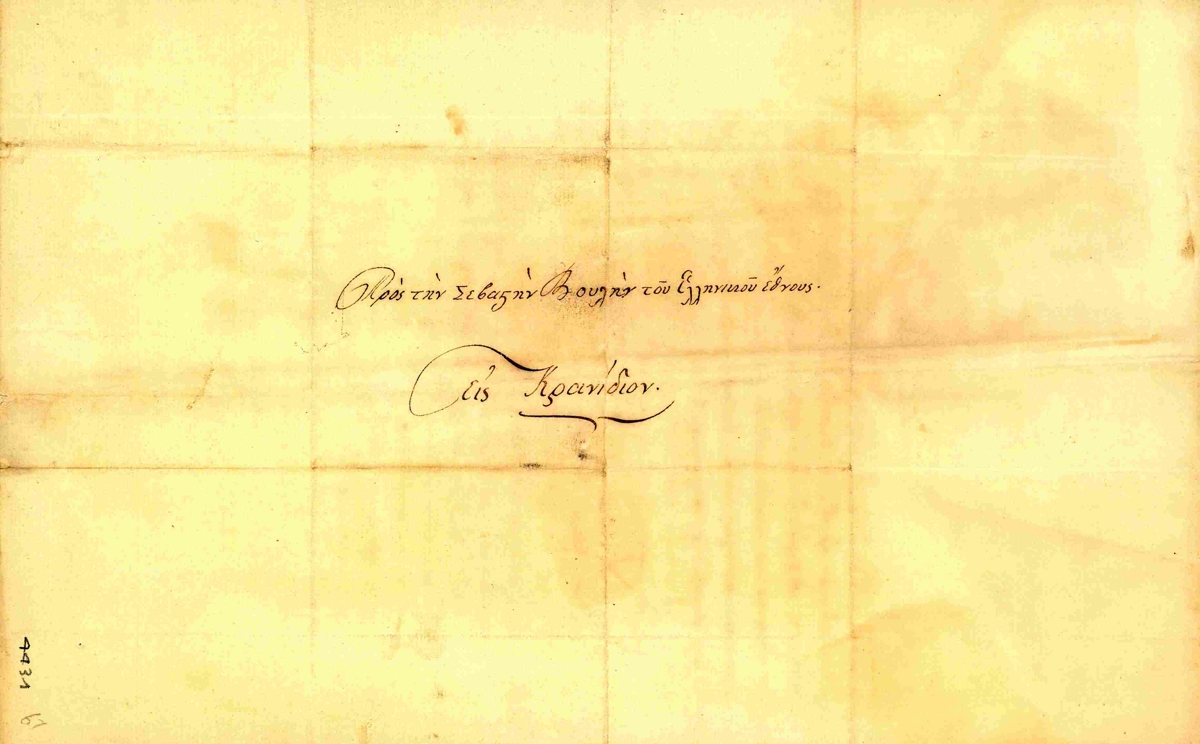 Πρὸς τὴν Σεβαςὴν Βουλὴν τοῦ Ἑλληνικοῦ ἔθνους.
εἰς Κρανίδιον.
4431